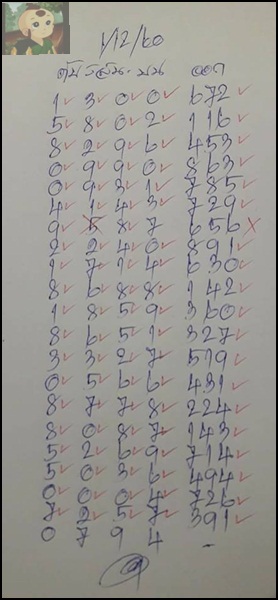 1/12/60
1 3 0 0 672
5 8 0 2 116
8 2 9 6 453
0 9 9 0 863
0 9 3 1 785
4 1 4 3 729
9 5 8 7 656 x
2 2 4 0 891
1 7 1 4 630
8 6 8 8 142
1 8 5 9 360
8 6 5 1 327
3 3 2 7 519
0 5 6 6 431
8 7 7 8 224
8 0 8 7 143
5 2 6 9 714
5 0 3 6 494
0 0 0 4 726
7 2 5 7 391
0 7 9 4 -